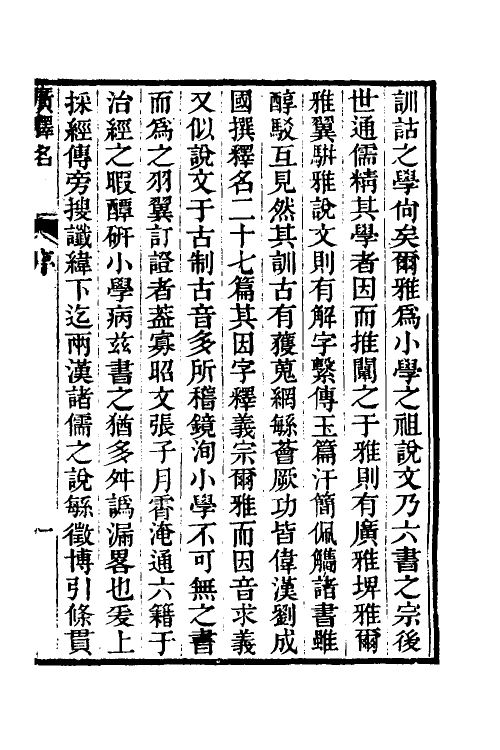 訓詁之學尙矣爾雅爲小學之祖說文乃六書之宗後
世通儒精其學者因而推闡之于雅則有廣雅埤雅爾
雅翼駢雅說文則有解字繫傳玉篇汗簡佩觿諸書雖
醇駁互見然其訓古有獲蒐網緐薈厥功皆偉漢劉成
國撰釋名二十七篇其因字釋義宗爾雅而因音求義
又似說文于古制古音多所稽鏡洵小學不可無之書
而爲之羽翼訂證者葢寡昭文張子月霄淹通六籍于
治經之暇醰硏小學病玆書之猶多舛譌漏畧也爰上
採經傳旁搜讖緯下迄兩漢諸儒之說緐徵博引條貫
廣釋名 序 一